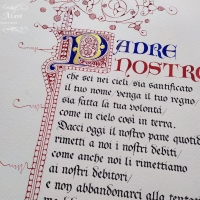 PADRE
NOSTRO
che sei nei cieli sia santificato
il tuo nome venga il tuo regno/
sia fatta la tua volontà/
come in cielo così in terra.
Dacci oggi il nostro pane quotid
rimetti a noi i nostri debiti/
come anche noi li rimettiamo
ai nostri debitori/
e non abbandonarci alla tentazi